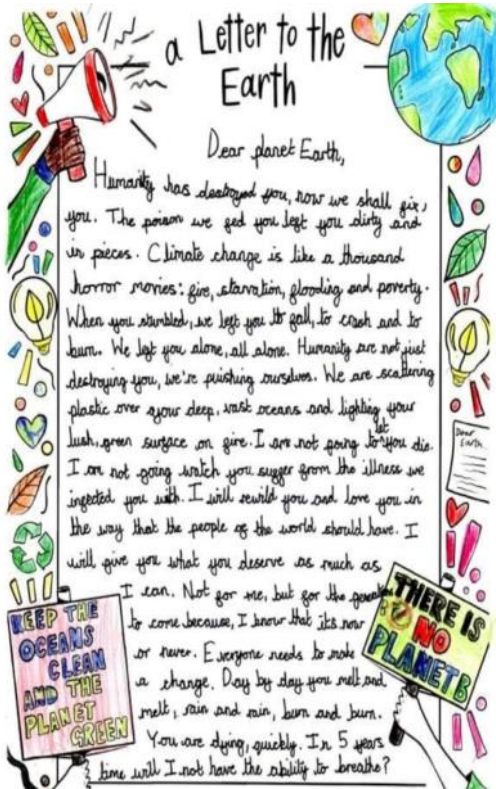 a Letter to the
Earth
Dear planet Earth,
Humanity has destroyed you, now we shall fix,
you. The poison we fed you left you dirty and
in pieces. Climate change is like a thousand
horror movies: fire, starvation, flooding and poverty.
When you stumbled, we left you to fall, to crash and to
burn. We left you alone, all alone. Humanity are not just
destroying you, we're puishing ourselves. We are scattering
plastic over your deep, vast oceans and lighting your
lush, green surface on fire. I am not going to let you die.
I am not going watch you suffer from the illness we
infected you with. I will rewild you and love you in
the way that the people of the world should have. I
will give you what you deserve as much as
I can. Not for me, but for the generation
to come because, I know that it's now
or never. Everyone needs to make
a change. Day by day you melt and
melt, rain and rain, burn and burn.
You are dying, quickly. In 5 years
time will I not have the ability to breathe?
Dear
Earth
KEEP THE
OCEANS
CLEAN
AND THE
PLANET
GREEN
THERE IS
NO
PLANET B